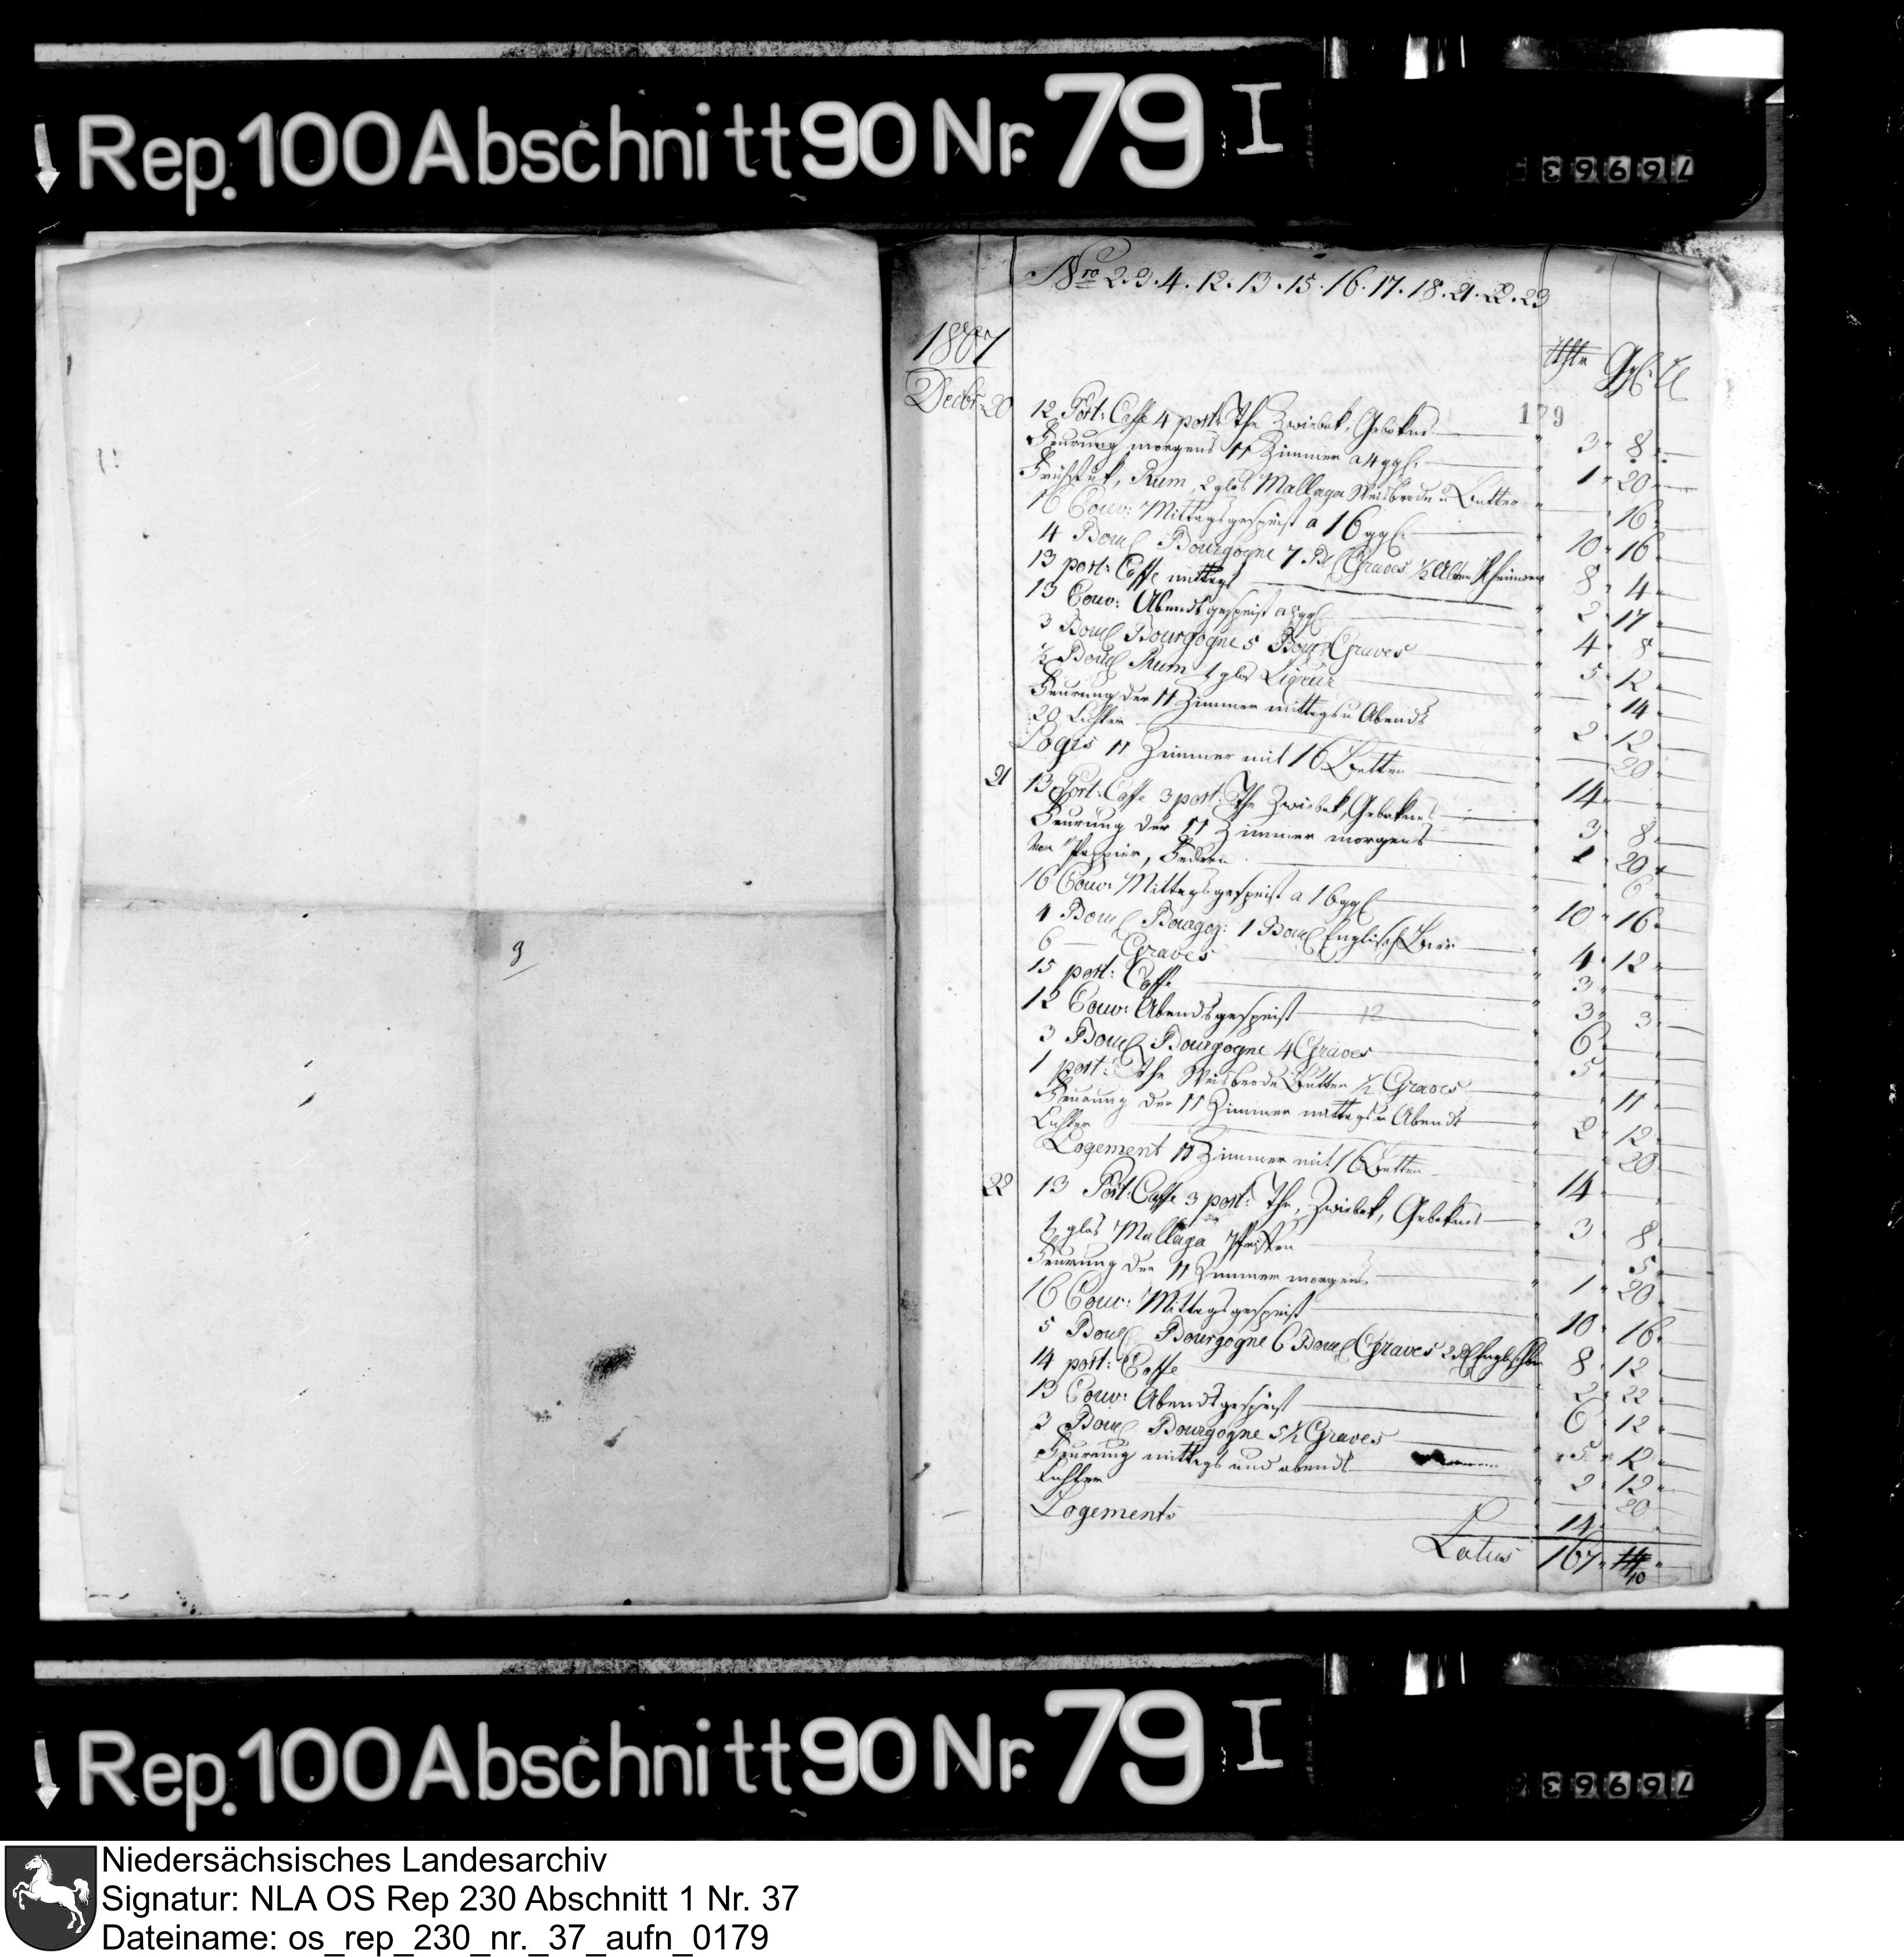 Rep. 100 Abschnitt 90 Nr. 79 I
76963
9
Nro 2. 3. 4. 12. 13. 15. 16. 17. 18. 21. 22. 23
1807
Rthlr Ggl.
Decbr 20
179
12 Port: Caffe 4 port: The Zwiebak, Gebaknes 3 8
Feurung morgens 11 Zimmer a 4 ggl. 1 20
Frühstuk, Rum, 2 glas Mallaga Weisbrodt u Butter 16
16 Couv: Mittagsgespeist a 16 ggl. 10 16
4 Boul Bourgogne 7 Bl Graves 1/2 Alten Rheinwein 8 4
13 port: Caffe mittags 2 17
13 Couv: Abendsgespeist a 8 ggl 4 8
3 Boul Bourgogne 5 Boul Graves 5 12
1/2 Boul Rum 1 glas Liqeur 14
Feurung der 11 Zimmer mittags u Abends 2 12
20 Lichter 20
Logis 11 Zimmer mit 16 Betten 14
21 13 Port: Caffe 3 port: The Zwiebak, Gebaknes 3 8
Feurung der 11 Zimmer morgens 1 20
Vor Pappier, Federn 6
16 Couv: Mittagsgespeist a 16 ggl 10 16
4 Boul Bourgog: 1 Boul Englisch Bier 4 12
6 — Graves 3
15 port: Caffe 3 3
12 Couv: Abendsgespeist 12 6
3 Boul Bourgogne 4 Graves 5
1 port: The Weisbrodt Butter 1/2 Graves 11
Feurung der 11 Zimmer mittags u Abends 2 12
Lichter 20
Logement 11 Zimmer mit 16 Betten 14
22 13 Port: Caffe 3 port: The, Zwiebak, Gebaknes 3 8
1/2 glas Mallaga 5
Feurung der 11 Zimmer morgens 1 20
16 Couv: Mittagsgespeist 10 16
5 Boul Bourgogne 6 Boul Graves 2 Bl Englisch Bier 8 12
14 port: Caffe 2 22
13 Couv: Abendsgespeist 6 12
3 Boul Bourgogne 5 1/2 Graves 5 12
Feurung mittags und abends 2 12
Lichter 20
Logements 14
Latus 167 10
Rep. 100 Abschnitt 90 Nr. 79 I
76963
Niedersächsisches Landesarchiv
Signatur: NLA OS Rep 230 Abschnitt 1 Nr. 37
Dateiname: os_rep_230_nr._37_aufn_0179